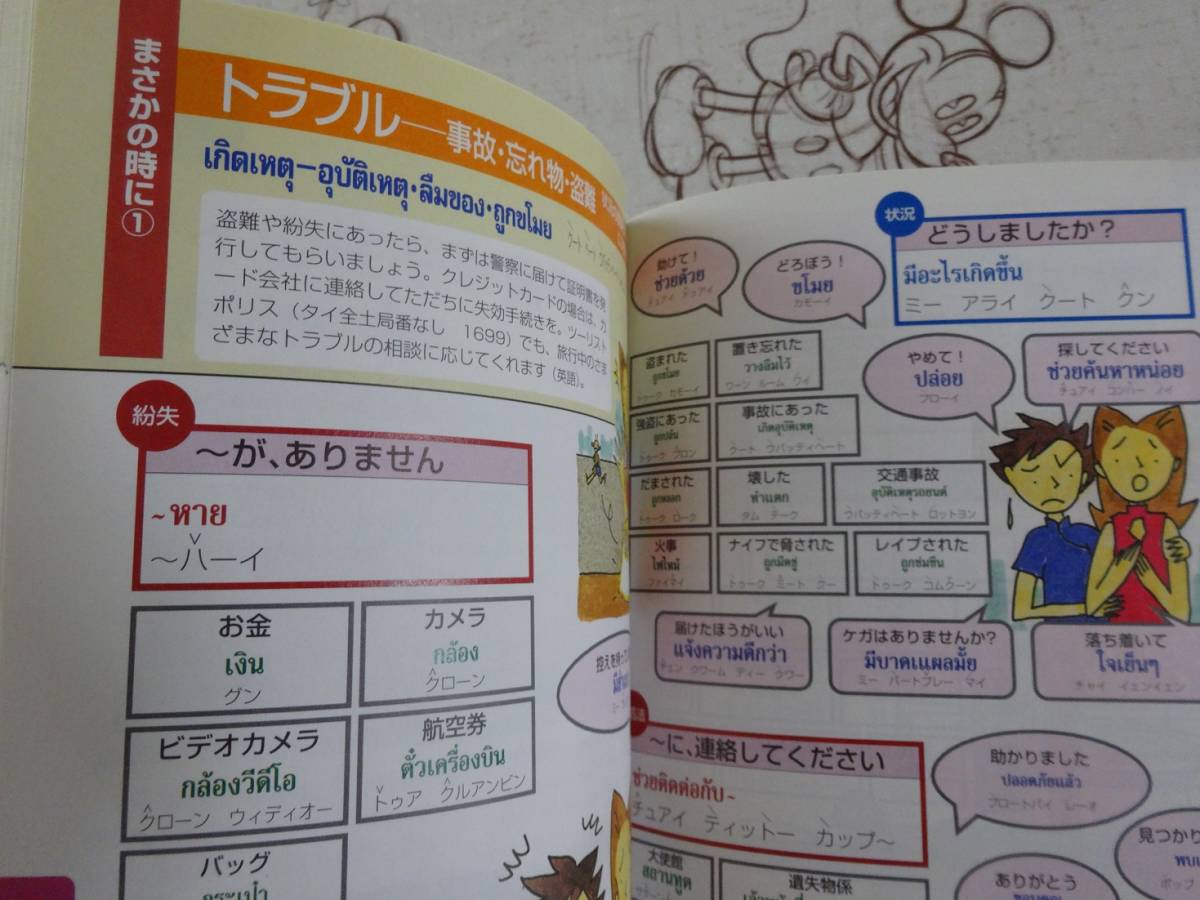 まさかの時に①
トラブル——事故・忘れ物・盗難
เกิดเหตุ–อุบัติเหตุ・ลืมของ・ถูกขโมย
盗難や紛失にあったら、まずは警察に届けて証明書を発
行してもらいましょう。クレジットカードの場合は、カ
ード会社に連絡してただちに失効手続きを。ツーリスト
ポリス(タイ全土局番なし 1699)でも、旅行中のさま
ざまなトラブルの相談に応じてくれます(英語)。
紛失
〜が、ありません
~หาย
〜ハーイ
お金
เงิน
グン
カメラ
กล้อง
クローン
ビデオカメラ
กล้องวีดีโอ
クローン ウィディオー
航空券
ตั๋วเครื่องบิน
トゥア クルアンビン
バッグ
กระเป๋า
助けて!
ช่วยด้วย
チュアイ ドゥアイ
どろぼう!
ขโมย
カモーイ
状況
どうしましたか?
มีอะไรเกิดขึ้น
ミー アライ クート クン
盗まれた
ถูกขโมย
トゥーク カモーイ
置き忘れた
วางลืมไว้
ワーン ルーム ワイ
やめて!
ปล่อย
プローイ
探してください
ช่วยค้นหาหน่อย
チュアイ コンハー ノイ
強盗にあった
ถูกปล้น
トゥーク プロン
事故にあった
เกิดอุบัติเหตุ
クート ウバッティヘート
だまされた
ถูกหลอก
トゥーク ローク
壊した
ทำแตก
タム テーク
交通事故
อุบัติเหตุรถยนต์
ウバッティヘート ロットヨン
火事
ไฟไหม้
ファイマイ
ナイフで脅された
ถูกมีดขู่
トゥーク ミート クー
レイプされた
ถูกข่มขืน
トゥーク コムクーン
届けたほうがいい
แจ้งความดีกว่า
チェン クワーム ディー クワー
ケガはありませんか?
มีบาดแผลมั้ย
ミー バートプレー マイ
落ち着いて
ใจเย็นๆ
チャイ イェンイェン
〜に、連絡してください
ช่วยติดต่อกับ~
チュアイ ティットー カップ〜
助かりました
ปลอดภัยแล้ว
プロートパイ レーオ
大使館
สถานทูต
遺失物係
見つかり
พบ
ポップ
ありがとう
ขอบคุณ